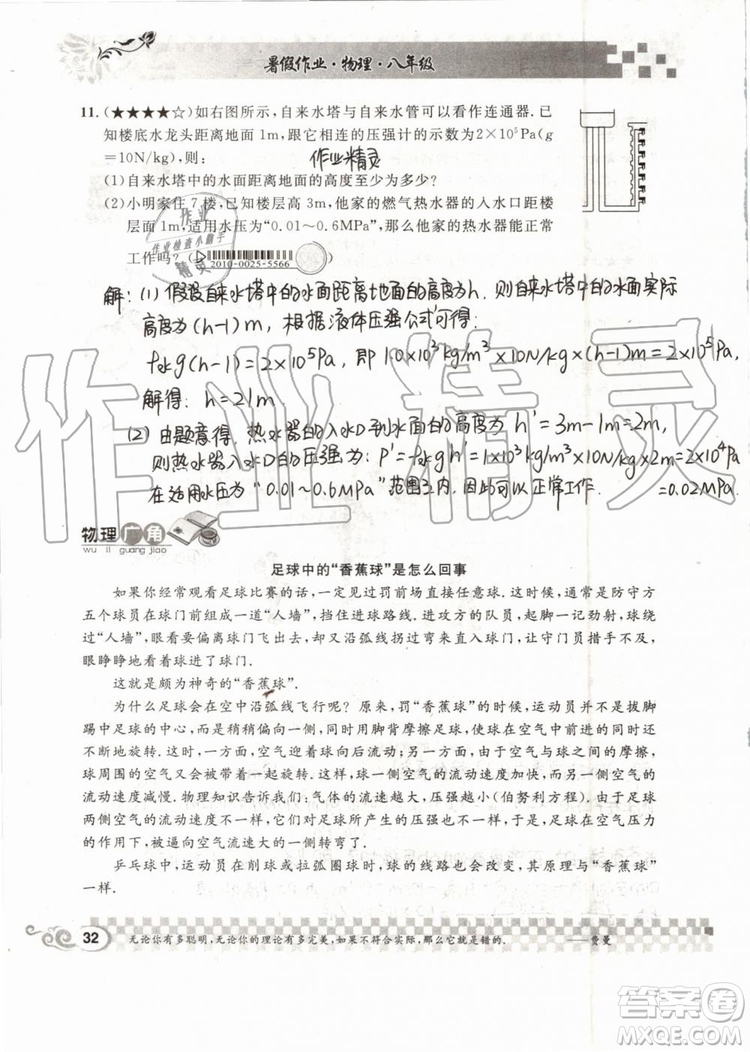 暑假作业·物理·八年级
11.(★★★★☆)如右图所示,自来水塔与自来水管可以看作连通器.已
知楼底水龙头距离地面1m,跟它相连的压强计的示数为2×10⁵Pa(g
=10N/kg),则:
作业精灵
(1)自来水塔中的水面距离地面的高度至少为多少?
(2)小明家住7楼,已知楼层高3m,他家的热水器的入水口距楼
层面1m,适用水压为“0.01~0.6MPa”,那么他家的热水器能正常
工作吗?(
2010-0025-5566
)
作业
作业检查小帮手
精灵
解:(1)假设自来水塔中的水面距离地面的高度为h,则自来水塔的水面实际
高度为(h-1)m,根据液体压强公式可得:
ρ水g(h-1)=2×10⁵Pa,即1.0×10³kg/m³×10N/kg×(h-1)m=2×10⁵Pa,
解得:h=21m.
(2)由题意得,热水器的入水口到水面的高度为h'=3m-1m=2m,
则热水器入水口的压强为:P'=ρ水gh'=1×10³kg/m³×10N/kg×2m=2×10⁴Pa
=0.02MPa.
在适用水压为“0.01~0.6MPa”范围之内,因此可以正常工作.
作业精灵
物理广角
wu li guang jiao
足球中的“香蕉球”是怎么回事
如果你经常观看足球比赛的话,一定见过罚前场直接任意球.这时候,通常是防守方
五个球员在球门前组成一道“人墙”,挡住进球路线.进攻方的队员,起脚一记劲射,球绕
过了“人墙”,眼看要偏离球门飞出去,却又沿弧线拐过弯来直入球门,让守门员措手不及,
眼睁睁地看着球进了球门.
这就是颇为神奇的“香蕉球”.
为什么足球会在空中沿弧线飞行呢?原来,罚“香蕉球”的时候,运动员并不是拔脚
踢中足球的中心,而是稍稍偏向一侧,同时用脚背摩擦足球,使球在空气中前进的同时还
不断地旋转.这时,一方面,空气迎着球向后流动;另一方面,由于空气与球之间的摩擦,
球周围的空气又会被带着一起旋转.这样,球一侧空气的流动速度加快,而另一侧空气的
流动速度减慢.物理知识告诉我们:气体的流速越大,压强越小(伯努利方程).由于足球
两侧空气的流动速度不一样,它们对足球所产生的压强也不一样,于是,足球在空气压力
的作用下,被逼向空气流速大的一侧转弯了.
乒乓球中,运动员在削球或拉弧圈球时,球的线路也会改变,其原理与“香蕉球”
一样.
32
无论你有多聪明,无论你的理论有多完美,如果不符合实际,那么它就是错的.
——费曼
答案卷
MXQE.COM